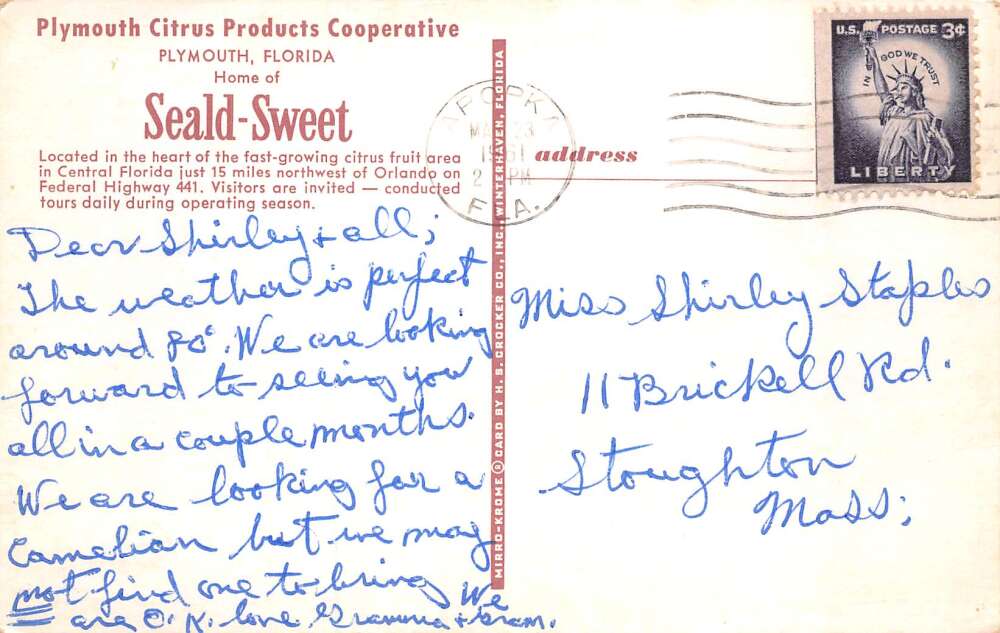 Plymouth Citrus Products Cooperative
PLYMOUTH, FLORIDA
Home of
Seald-Sweet
Located in the heart of the fast-growing citrus fruit area
in Central Florida just 15 miles northwest of Orlando on
Federal Highway 441. Visitors are invited — conducted
tours daily during operating season.
Dear Shirley & all;
The weather is perfect
around 80°. We are looking
forward to seeing you
all in a couple months.
We are looking for a
Camelian but we may
not find one to bring We
are O.K. love Gramma & Gram.
MIRRO-KROME ® CARD BY H. S. CROCKER CO., INC. WINTERHAVEN, FLORIDA
APOPKA
23
1961
2 PM
FLA.
address
U.S. POSTAGE 3¢
IN GOD WE TRUST
LIBERTY
Miss Shirley Staples
11 Brickell Rd.
Stoughton
Mass;